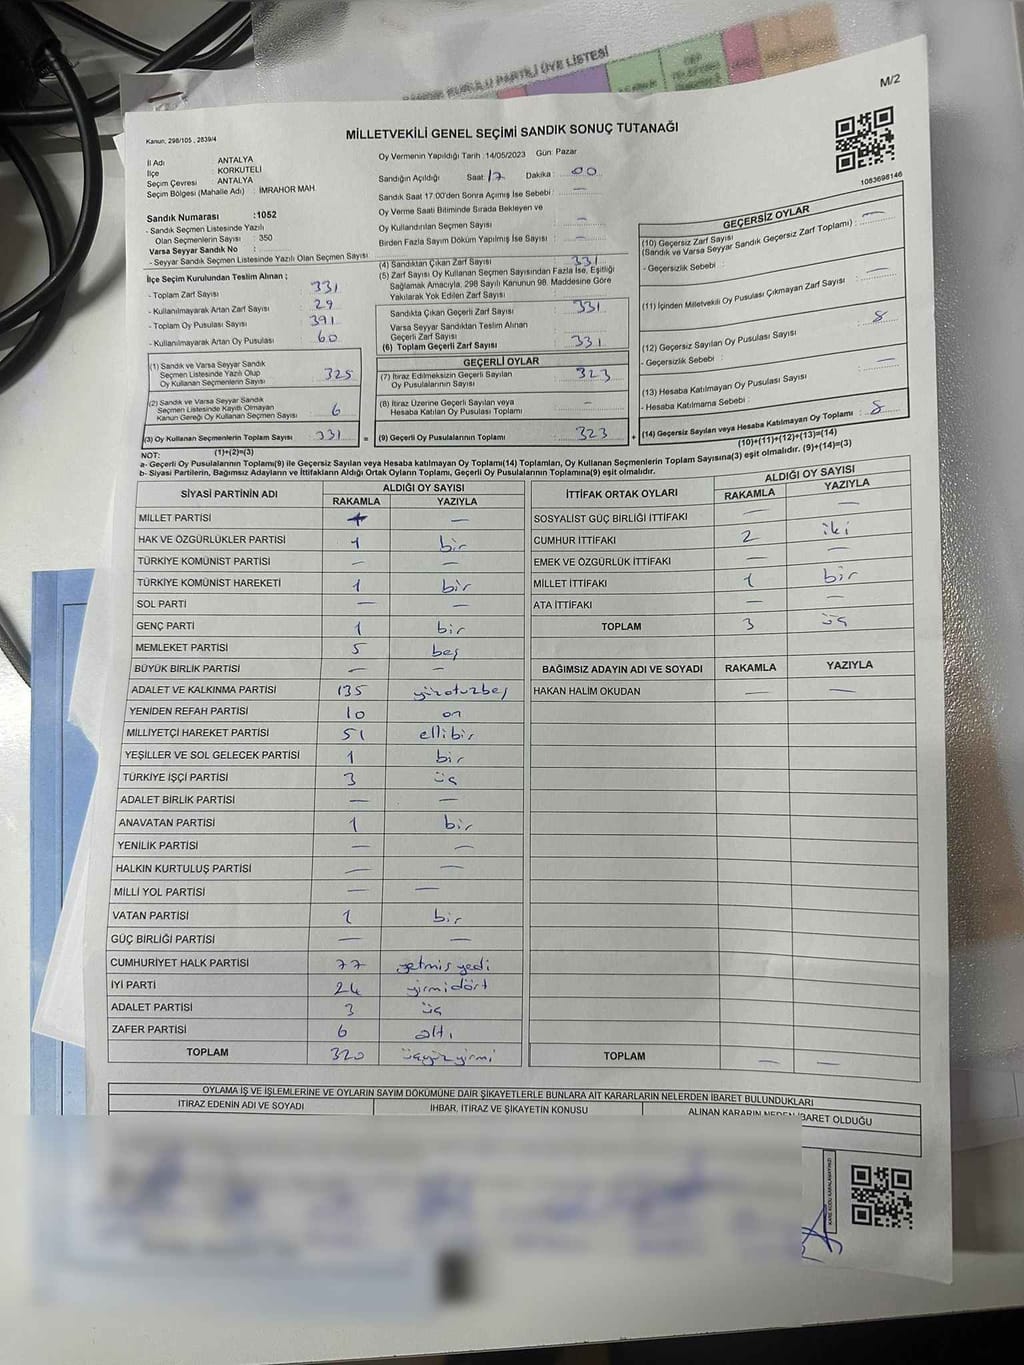 SANDIK KURULU PARTİLİ ÜYE LİSTESİ
M/2
Kanun; 298/105 , 2839/4
MİLLETVEKİLİ GENEL SEÇİMİ SANDIK SONUÇ TUTANAĞI
1083698146
İl Adı : ANTALYA
İlçe : KORKUTELİ
Seçim Çevresi : ANTALYA
Seçim Bölgesi (Mahalle Adı) : İMRAHOR MAH.
Sandık Numarası :1052
- Sandık Seçmen Listesinde Yazılı
Olan Seçmenlerin Sayısı : 350
Varsa Seyyar Sandık No :
- Seyyar Sandık Seçmen Listesinde Yazılı Olan Seçmen Sayısı
Oy Vermenin Yapıldığı Tarih :14/05/2023 Gün: Pazar
Sandığın Açıldığı Saat 17 Dakika : 00
Sandık Saat 17:00'den Sonra Açımış İse Sebebi : —
Oy Verme Saati Bitiminde Sırada Bekleyen ve
Oy Kullandırılan Seçmen Sayısı : —
Birden Fazla Sayım Döküm Yapılmış İse Sayısı : —
İlçe Seçim Kurulundan Teslim Alınan ;
- Toplam Zarf Sayısı : 331
- Kullanılmayarak Artan Zarf Sayısı : 29
- Toplam Oy Pusulası Sayısı : 391
- Kullanılmayarak Artan Oy Pusulası : 60
(1) Sandık ve Varsa Seyyar Sandık
Seçmen Listesinde Yazılı Olup
Oy Kullanan Seçmenlerin Sayısı : 325
(2) Sandık ve Varsa Seyyar Sandık
Seçmen Listesinde Kayıtlı Olmayan
Kanun Gereği Oy Kullanan Seçmen Sayısı : 6
(3) Oy Kullanan Seçmenlerin Toplam Sayısı : 331
(1)+(2)=(3)
(4) Sandıktan Çıkan Zarf Sayısı : 331
(5) Zarf Sayısı Oy Kullanan Seçmen Sayısından Fazla İse, Eşitliği
Sağlamak Amacıyla, 298 Sayılı Kanunun 98. Maddesine Göre
Yakılarak Yok Edilen Zarf Sayısı :
Sandıkta Çıkan Geçerli Zarf Sayısı : 331
Varsa Seyyar Sandıktan Teslim Alınan
Geçerli Zarf Sayısı :
(6) Toplam Geçerli Zarf Sayısı : 331
GEÇERLİ OYLAR
(7) İtiraz Edilmeksizin Geçerli Sayılan
Oy Pusulalarının Sayısı : 323
(8) İtiraz Üzerine Geçerli Sayılan veya
Hesaba Katılan Oy Pusulası Toplamı : —
= (9) Geçerli Oy Pusulalarının Toplamı : 323 +
GEÇERSİZ OYLAR
(10) Geçersiz Zarf Sayısı
(Sandık ve Varsa Seyyar Sandık Geçersiz Zarf Toplamı) : —
- Geçersizlik Sebebi :
(11) İçinden Milletvekili Oy Pusulası Çıkmayan Zarf Sayısı : —
(12) Geçersiz Sayılan Oy Pusulası Sayısı : 8
- Geçersizlik Sebebi :
(13) Hesaba Katılmayan Oy Pusulası Sayısı : —
- Hesaba Katılmama Sebebi :
(14) Geçersiz Sayılan veya Hesaba Katılmayan Oy Toplamı : 8
(10)+(11)+(12)+(13)=(14)
NOT:
a- Geçerli Oy Pusulalarının Toplamı(9) ile Geçersiz Sayılan veya Hesaba katılmayan Oy Toplamı(14) Toplamları, Oy Kullanan Seçmenlerin Toplam Sayısına(3) eşit olmalıdır. (9)+(14)=(3)
b- Siyasi Partilerin, Bağımsız Adayların ve İttifakların Aldığı Ortak Oyların Toplamı, Geçerli Oy Pusulalarının Toplamına(9) eşit olmalıdır.
SİYASİ PARTİNİN ADI ALDIĞI OY SAYISI
RAKAMLA YAZIYLA
MİLLET PARTİSİ —
HAK VE ÖZGÜRLÜKLER PARTİSİ 1 bir
TÜRKİYE KOMÜNİST PARTİSİ — —
TÜRKİYE KOMÜNİST HAREKETİ 1 bir
SOL PARTİ — —
GENÇ PARTİ 1 bir
MEMLEKET PARTİSİ 5 beş
BÜYÜK BİRLİK PARTİSİ — —
ADALET VE KALKINMA PARTİSİ 135 yüzotuzbeş
YENİDEN REFAH PARTİSİ 10 on
MİLLİYETÇİ HAREKET PARTİSİ 51 ellibir
YEŞİLLER VE SOL GELECEK PARTİSİ 1 bir
TÜRKİYE İŞÇİ PARTİSİ 3 üç
ADALET BİRLİK PARTİSİ — —
ANAVATAN PARTİSİ 1 bir
YENİLİK PARTİSİ — —
HALKIN KURTULUŞ PARTİSİ — —
MİLLİ YOL PARTİSİ — —
VATAN PARTİSİ 1 bir
GÜÇ BİRLİĞİ PARTİSİ — —
CUMHURİYET HALK PARTİSİ 77 yetmiş yedi
İYİ PARTİ 24 yirmidört
ADALET PARTİSİ 3 üç
ZAFER PARTİSİ 6 altı
TOPLAM 320 üçyüzyirmi
İTTİFAK ORTAK OYLARI ALDIĞI OY SAYISI
RAKAMLA YAZIYLA
SOSYALİST GÜÇ BİRLİĞİ İTTİFAKI — —
CUMHUR İTTİFAKI 2 iki
EMEK VE ÖZGÜRLÜK İTTİFAKI — —
MİLLET İTTİFAKI 1 bir
ATA İTTİFAKI — —
TOPLAM 3 üç
BAĞIMSIZ ADAYIN ADI VE SOYADI RAKAMLA YAZIYLA
HAKAN HALİM OKUDAN — —
TOPLAM — —
OYLAMA İŞ VE İŞLEMLERİNE VE OYLARIN SAYIM DÖKÜMÜNE DAİR ŞİKAYETLERLE BUNLARA AİT KARARLARIN NELERDEN İBARET BULUNDUKLARI
İTİRAZ EDENİN ADI VE SOYADI İHBAR, İTİRAZ VE ŞİKAYETİN KONUSU ALINAN KARARIN NEDEN İBARET OLDUĞU
KARE KODU KARALAMAYINIZ!